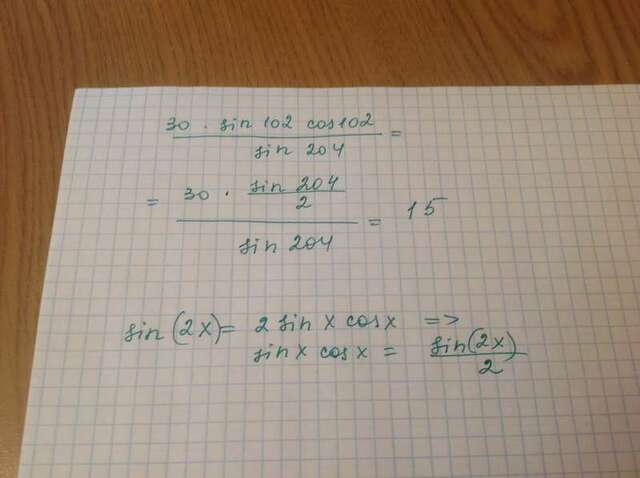 30 · sin 102 cos 102
sin 204 =
= 30 · sin 204
2
sin 204 = 15
sin (2x) = 2 sin x cos x =>
sin x cos x = sin(2x)
2